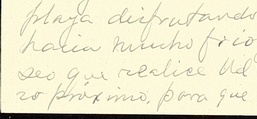 playa disfrutando
hacia mucho frio
seo que realice Ud
ro próximo, para que